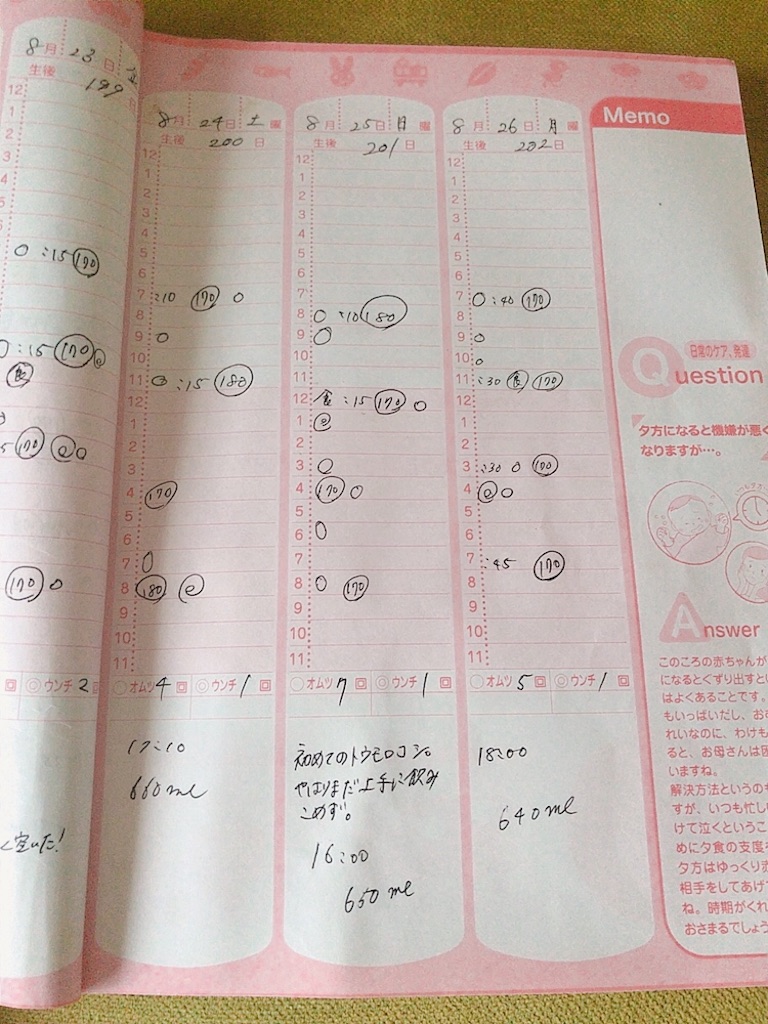 8月 23日 金
生後 199 日
12
1
2
3
4
○ :15 170
○:15 170 @
食
5 170 @ ○
170 ○
◎ウンチ 2 回
く空いた!
8月 24日 土曜
生後 200 日
12
1
2
3
4
5
6
7 :10 170 ○
8
9 ○
10
11 ○:15 180
12
1
2
3
4 170
5
6
7 ○
8 180 @
9
10
11
○オムツ 4 回 ◎ウンチ 1 回
17:10
660ml
8月 25日 日曜
生後 201 日
12
1
2
3
4
5
6
7
8 ○ :10 180
9 ○
10
11
12 食 :15 170 ○
1 @
2
3 ○
4 170 ○
5
6 ○
7
8 ○ 170
9
10
11
○オムツ 7 回 ◎ウンチ 1 回
初めてのトウモロコシ。
やはりまだ上手に飲み
こめず。
16:00
650ml
8月 26日 月曜
生後 202 日
12
1
2
3
4
5
6
7 ○:40 170
8
9 ○
10 ○
11 :30 食 170
12
1
2
3 :30 ○ 170
4 @ ○
5
6
7 :45 170
8
9
10
11
○オムツ 5 回 ◎ウンチ 1 回
18:00
640ml
Memo
日常のケア、発達
Question
夕方になると機嫌が悪く
なりますが…。
Answer
このころの赤ちゃんが
になるとぐずり出すとい
はよくあることです。
もいっぱいだし、お
れいなのに、わけも
ると、お母さんは困
いますね。
解決方法というのも
すが、いつも忙し
けて泣くというこ
めに夕食の支度を
夕方はゆっくり赤
相手をしてあげて
ね。時期がくれ
おさまるでしょう